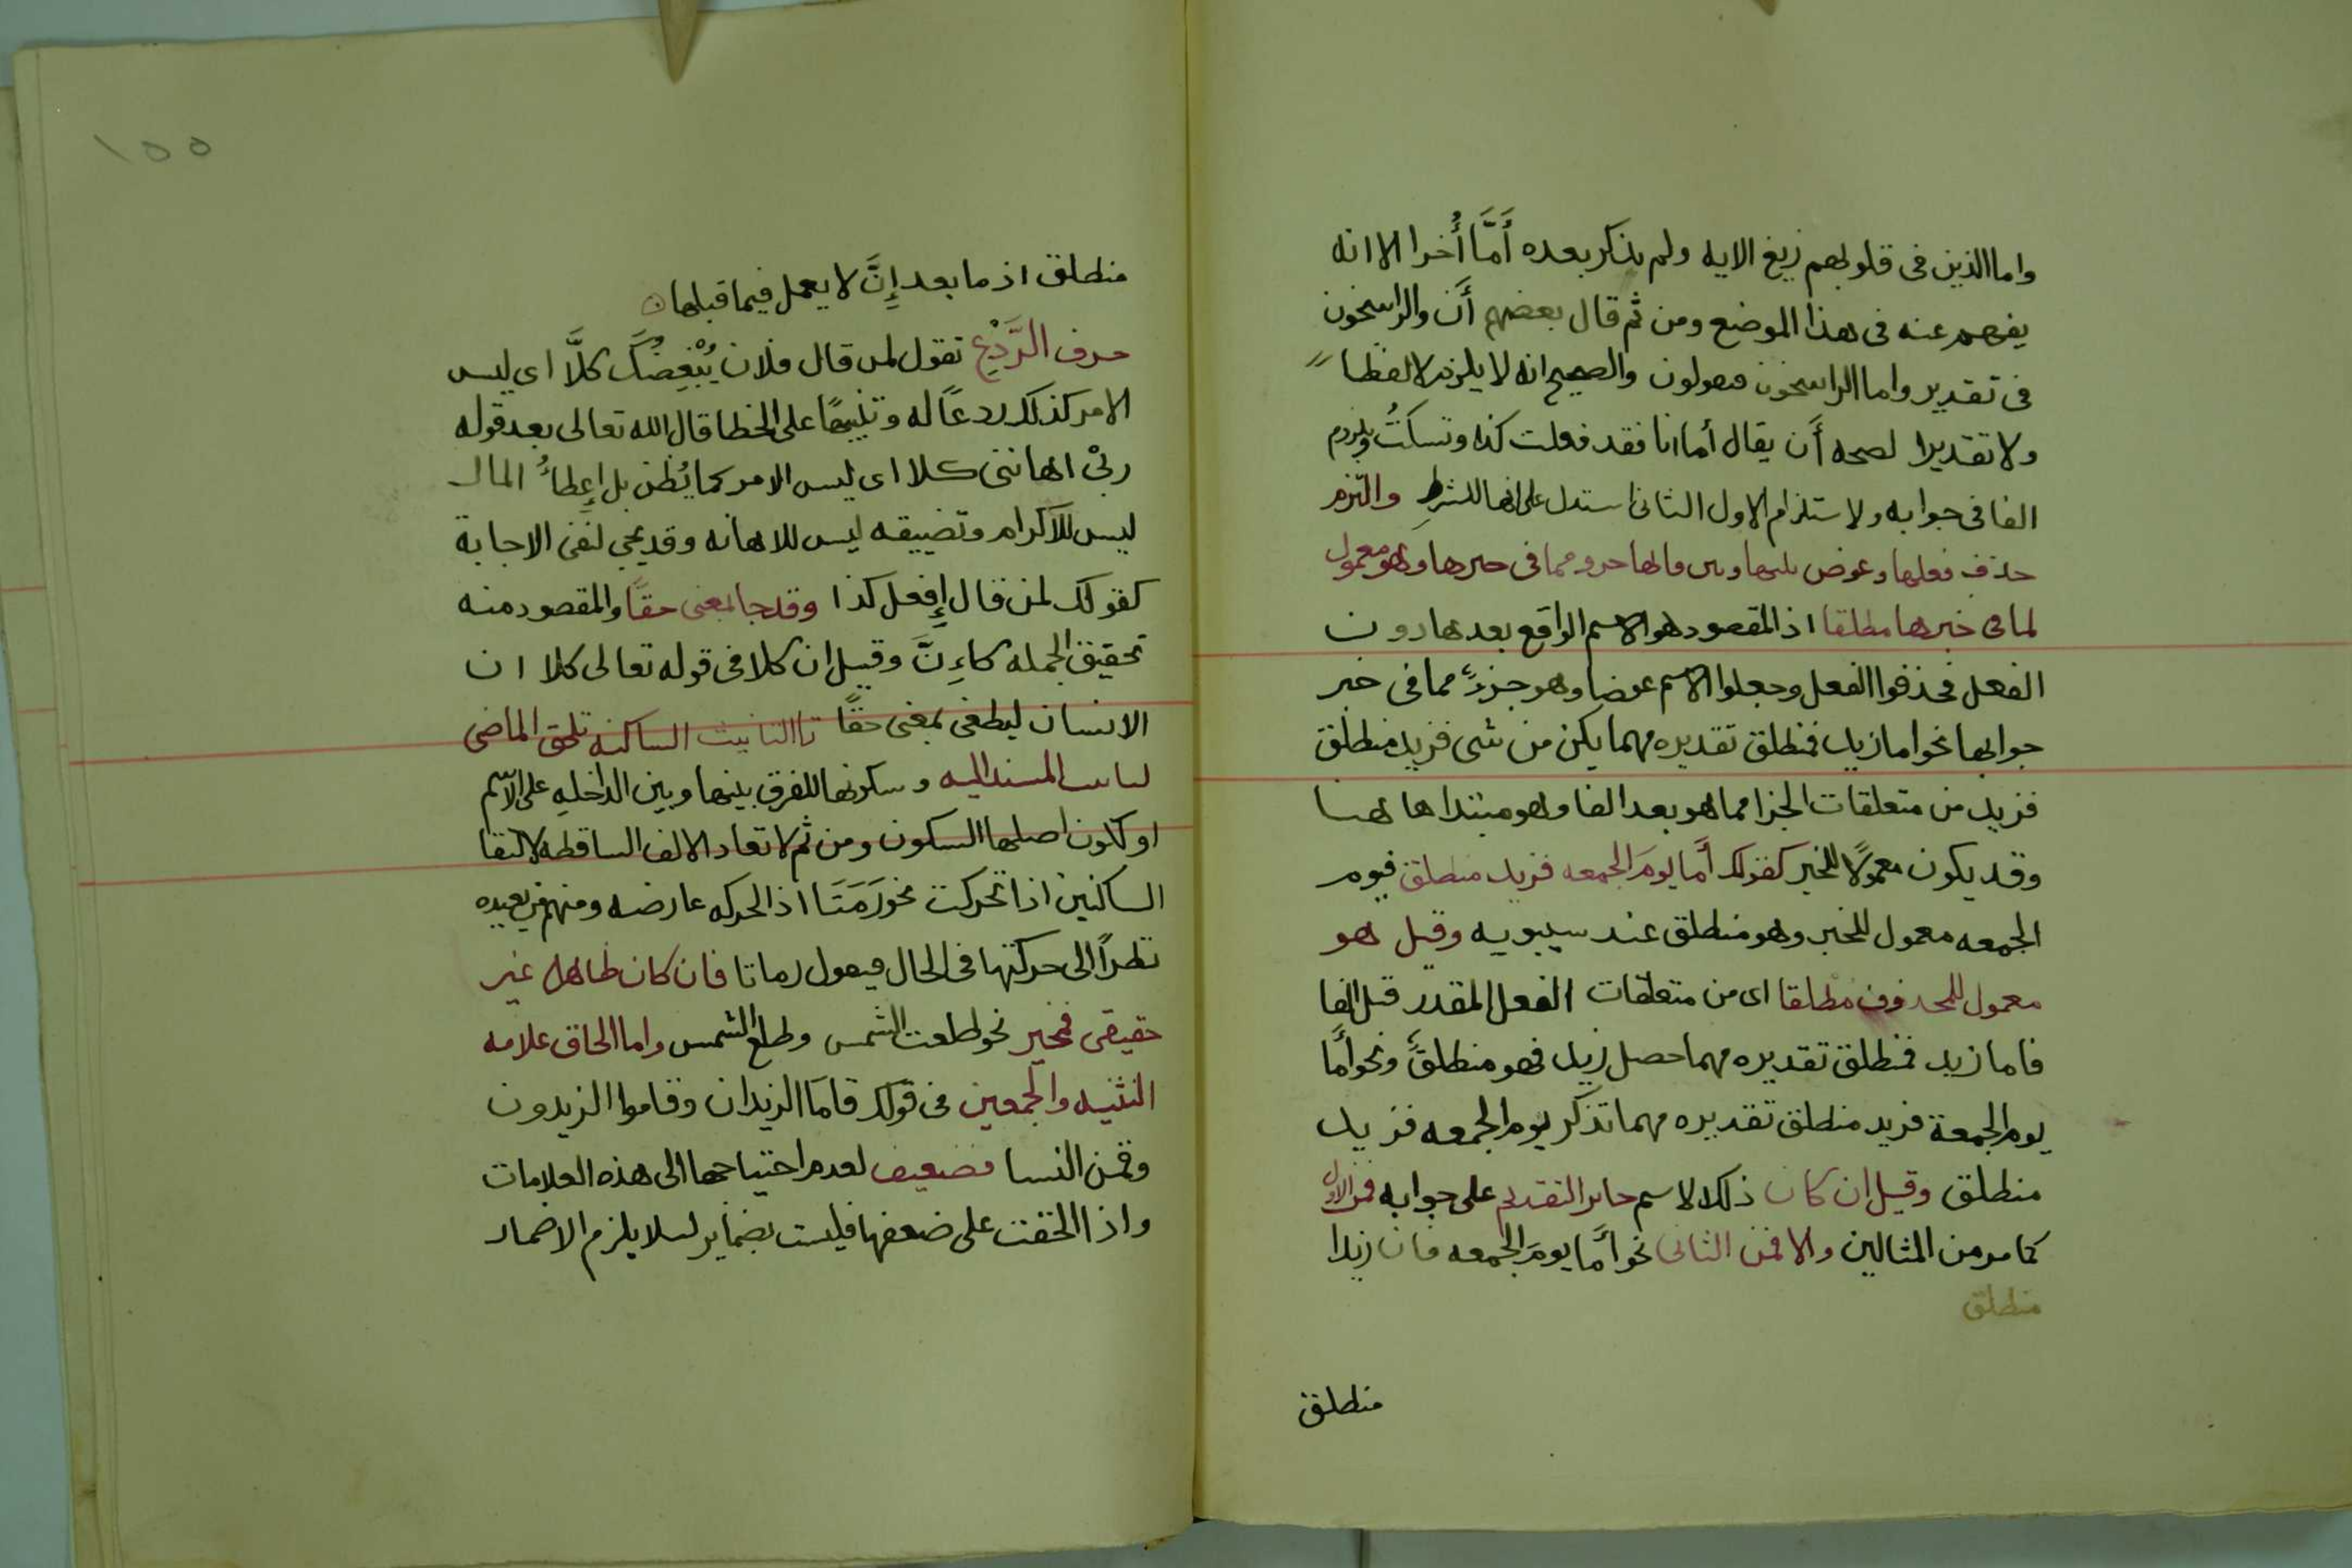 واما الذين فى قلوبهم زيغ الايه ولم يذكر بعده أَمَّا أُخرا الا انه
يفهم عنه فى هذا الموضع ومن ثم قال بعضهم أن والراسخون
فى تقدير واما الراسخون فيقولون والصحيح انه لا يلزم لا لفظا
ولا تقديرا لصحه أن يقال أما انا فقد فعلت كذا وتسكتُ ويلزم
الفا فى جوابه ولاستلزام الاول الثانى استدل على انها للشرط والتزم
حذف فعلها وعوض بينها وبين فائها جزو مما فى حيزها وهو معمول
لما فى خبرها مطلقا اذ المقصود هو الاسم الواقع بعدها دون
الفعل فحذفوا الفعل وجعلوا الاسم عوضا وهو جزءٌ مما فى خبر
جوابها نحو اما زيد فمنطلق تقديره مهما يكن من شى فزيد منطلق
فزيد من متعلقات الجزا مما هو بعد الفا وهو مبتدا ها هنا
وقد يكون معمولًا للخبر كقولك أما يومَ الجمعه فزيد منطلق فيوم
الجمعه معمول للخبر وهو منطلق عند سيبويه وقيل هو
معمول للمحذوف مطلقا اى من متعلقات الفعل المقدر قبل الفا
فاما زيد فمنطلق تقديره مهما حصل زيد فهو منطلقٌ ونحو أمّا
يوم الجمعة فزيد منطلق تقديره مهما تذكر يوم الجمعه فزيد
منطلق وقيل ان كان ذلك الاسم جايز التقديم على جوابه فمن الاول
كما مر من المثالين والا فمن الثانى نحو أمّا يومَ الجمعه فان زيدا
منطلق
منطلق
١٥٥
منطلق اذ ما بعد إنَّ لا يعمل فيما قبلها
حرف الرَّدْعِ تقول لمن قال فلان يُبْغِضُكَ كلَّا اى ليس
الامر كذلك ردعًا له وتنبيهًا على الخطا قال الله تعالى بعد قوله
ربّى اهاننى كلا اى ليس الامر كما يُظن بل إعطاءُ المال
ليس للاكرام وتضييقه ليس للاهانه وقد يجى لنفى الاجابة
كقولك لمن قال إفعل كذا وقد جا بمعنى حقًا والمقصود منه
تحقيق الجمله كاءِنَّ وقيل ان كلا فى قوله تعالى كلا ان
الانسان ليطغى بمعنى حقًا تا التانيث الساكنه تلحق الماضى
لتانيث المسند اليه وسكونها للفرق بينها وبين الداخله على الاسم
او لكون اصلها السكون ومن ثم لا تعاد الالف الساقطه لالتقا
الساكنين اذا تحركت نحو رَمَتَا اذ الحركه عارضه ومنهم من يعيده
نظرًا الى حركتها فى الحال فيقول رماتا فان كان ظاهرا غير
حقيقى فمخير نحو طلعت الشمس وطلع الشمس واما الحاق علامه
التثنيه والجمعين فى قولك قامَا الزيدان وقاموا الزيدون
وقمن النسا فضعيف لعدم احتياجها الى هذه العلامات
واذا الحقت على ضعفها فليست بضماير ليلا يلزم الاضمار